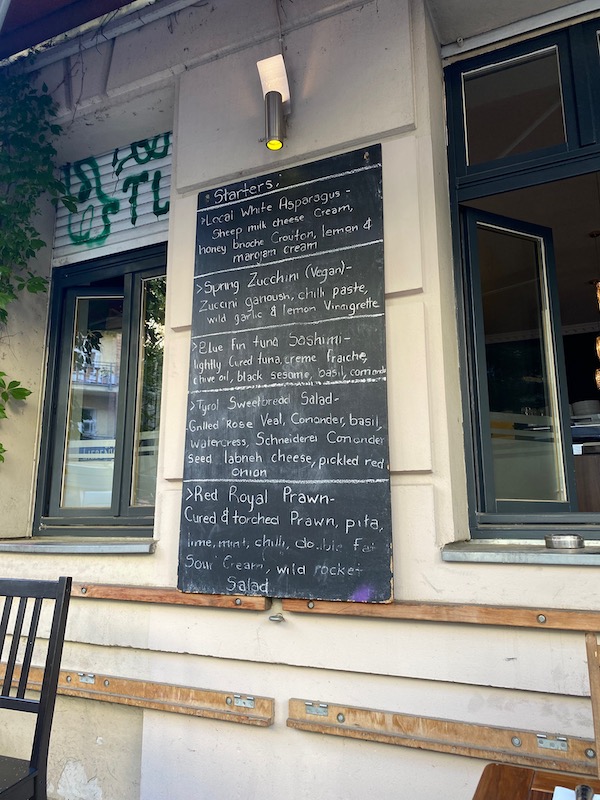 Starters:
>Local White Asparagus-
Sheep milk cheese Cream,
honey brioche Crouton, lemon &
marojam cream
>Spring Zucchini (Vegan)-
Zuccini ganoush, chilli paste,
wild garlic & lemon Vinaigrette
>Blue Fin tuna Sashimi-
lightly Cured tuna, creme fraiche,
chive oil, black sesame, basil, coriander
>Tyrol Sweetbread Salad-
Grilled Rose Veal, Coriander, basil,
watercress, Schneiderei Coriander
Seed labneh cheese, pickled red
onion
>Red Royal Prawn-
Cured & torched Prawn, pita,
lime, mint, chilli, double Fat
Sour Cream, wild rocket
Salad